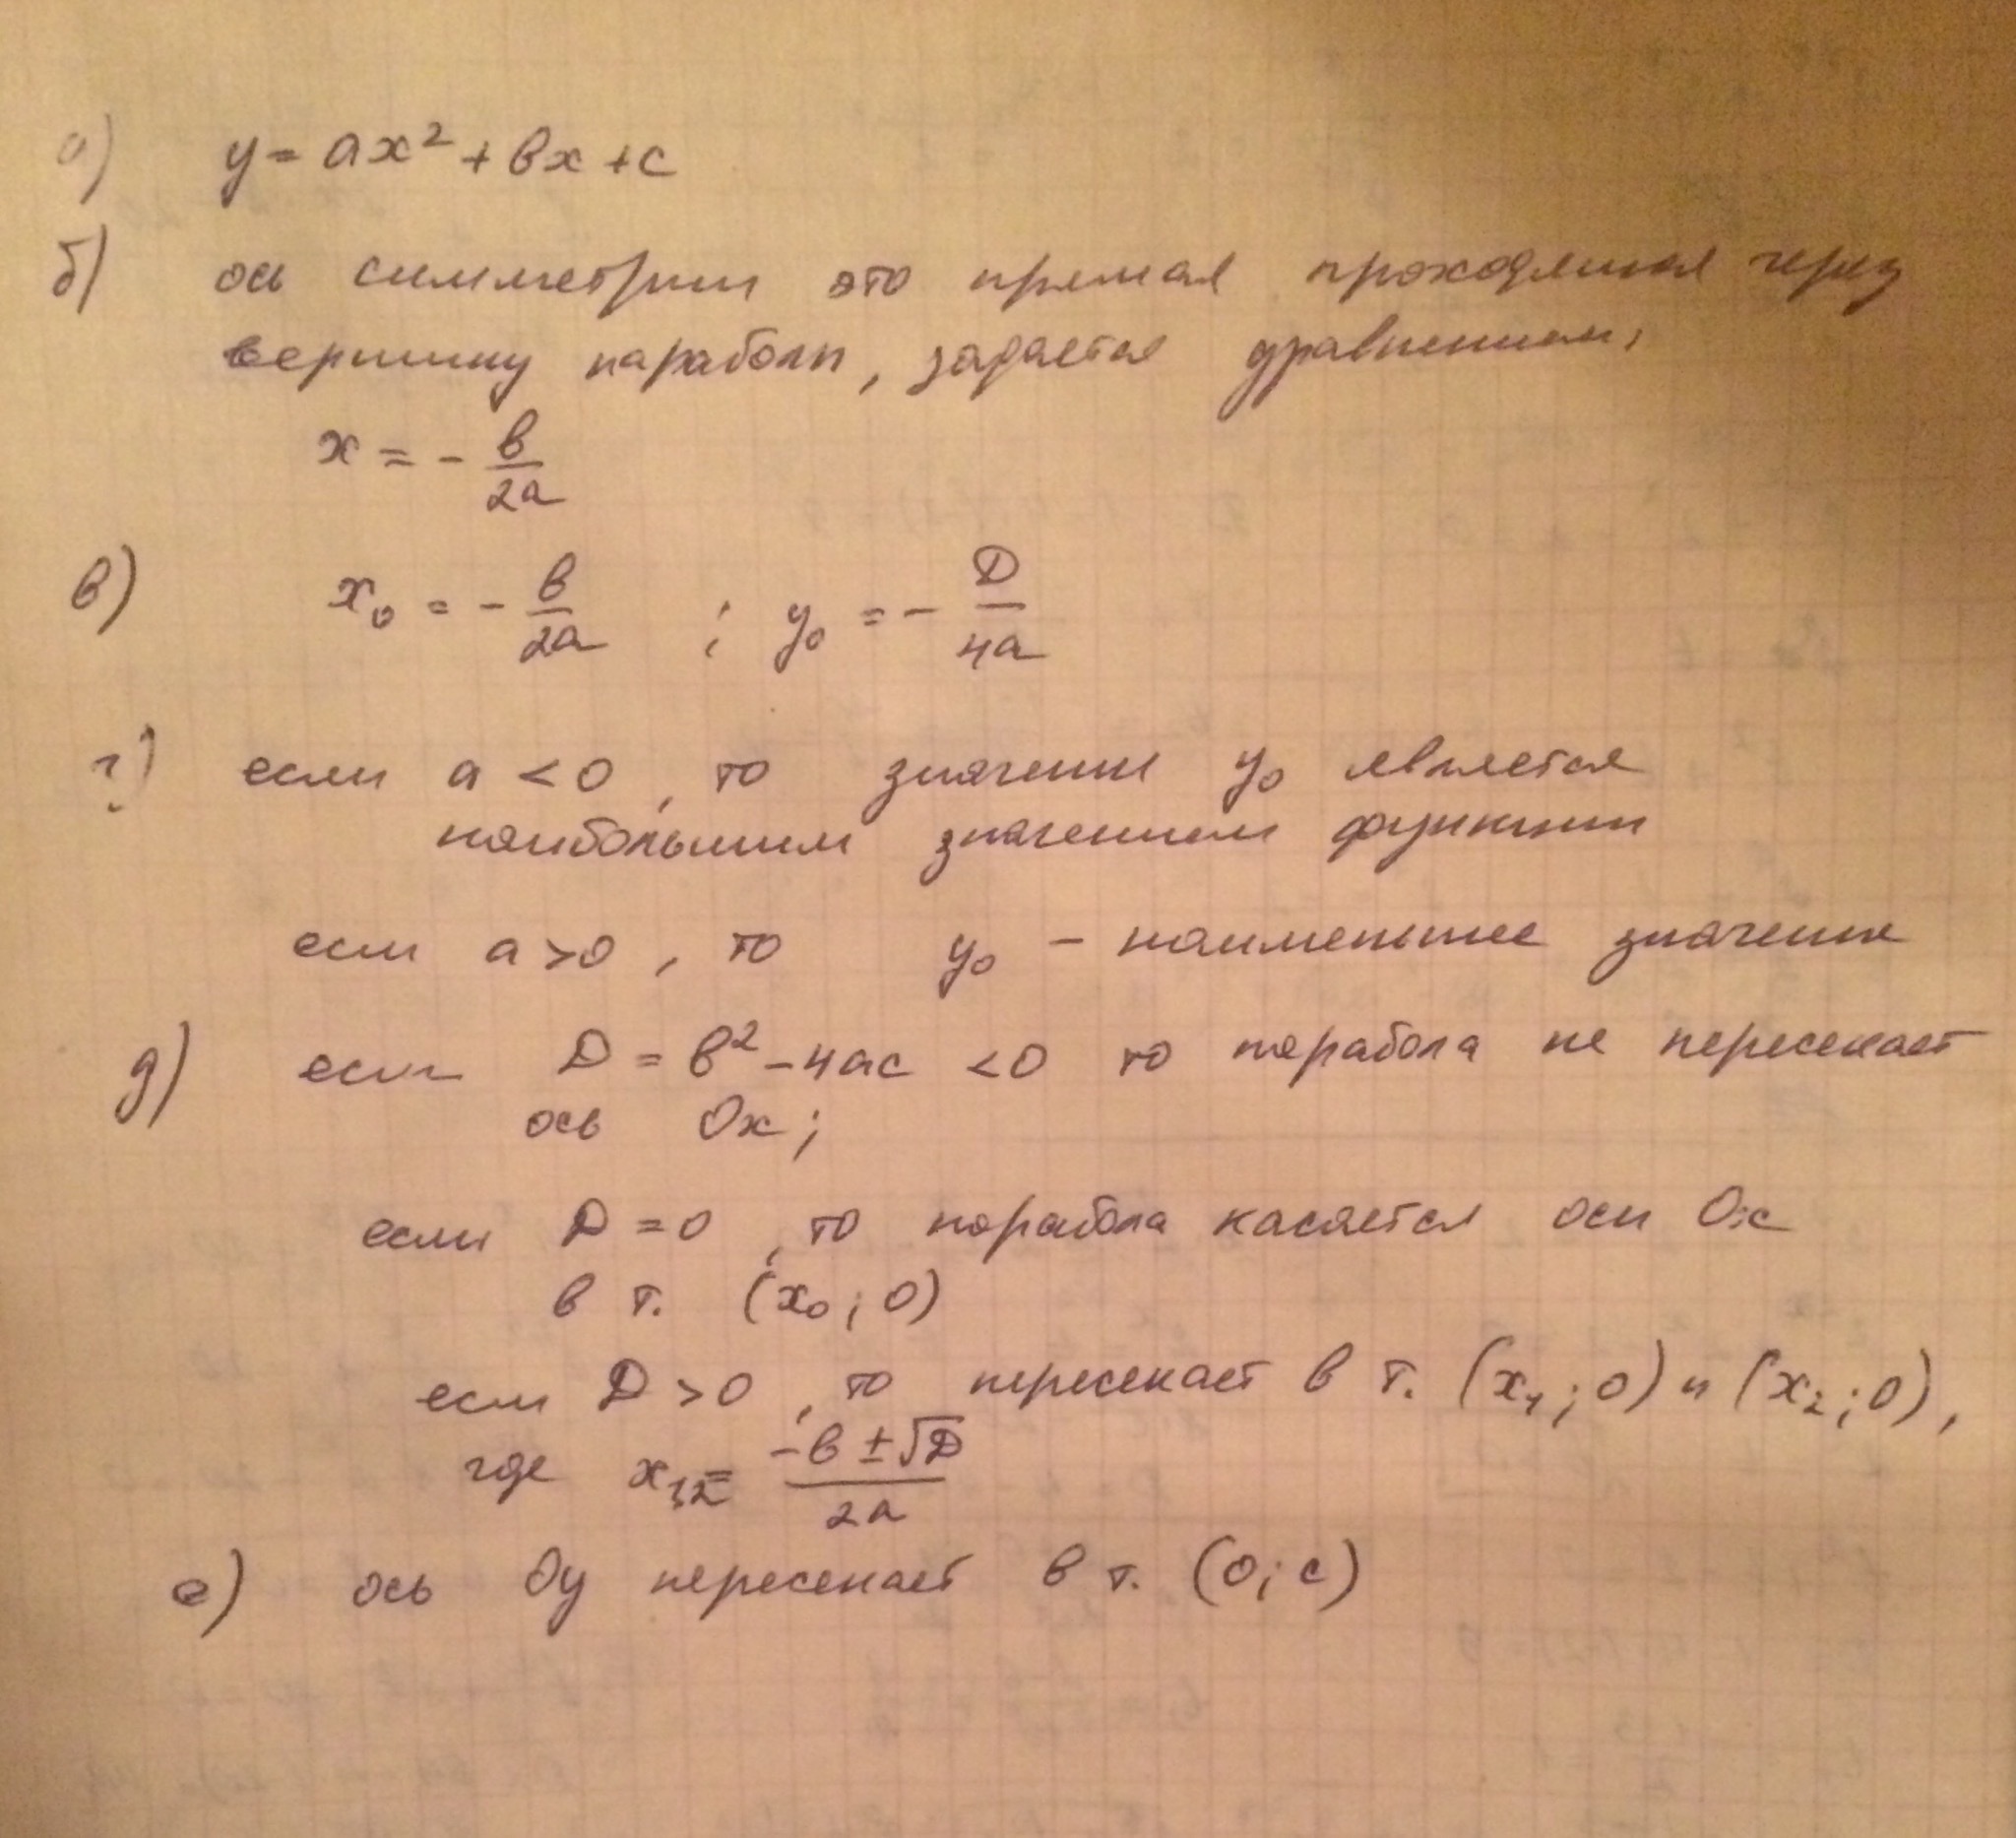 а) y = ax² + bx + c
б) ось симметрии это прямая проходящая через
вершину параболы, задается уравнением:
x = - b/2a
в) x₀ = - b/2a ; y₀ = - D/4a
г) если a < 0, то значение y₀ является
наибольшим значением функции
если a > 0, то y₀ - наименьшее значение
д) если D = b² - 4ac < 0 то парабола не пересекает
ось Ox;
если D = 0, то парабола касается оси Ox
в т. (x₀; 0)
если D > 0, то пересекает в т. (x₁; 0) и (x₂; 0),
где x₁,₂ = (-b ± √D)/2a
е) ось Oy пересекает в т. (0; c)